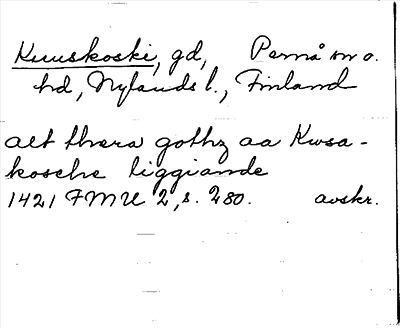 Kuuskoski, gd, Pernå sn o.
hd, Nylands l., Finland
alt thera gothz aa Kwsa-
koschj liggiande
1421 FMU 2, s. 280. avskr.